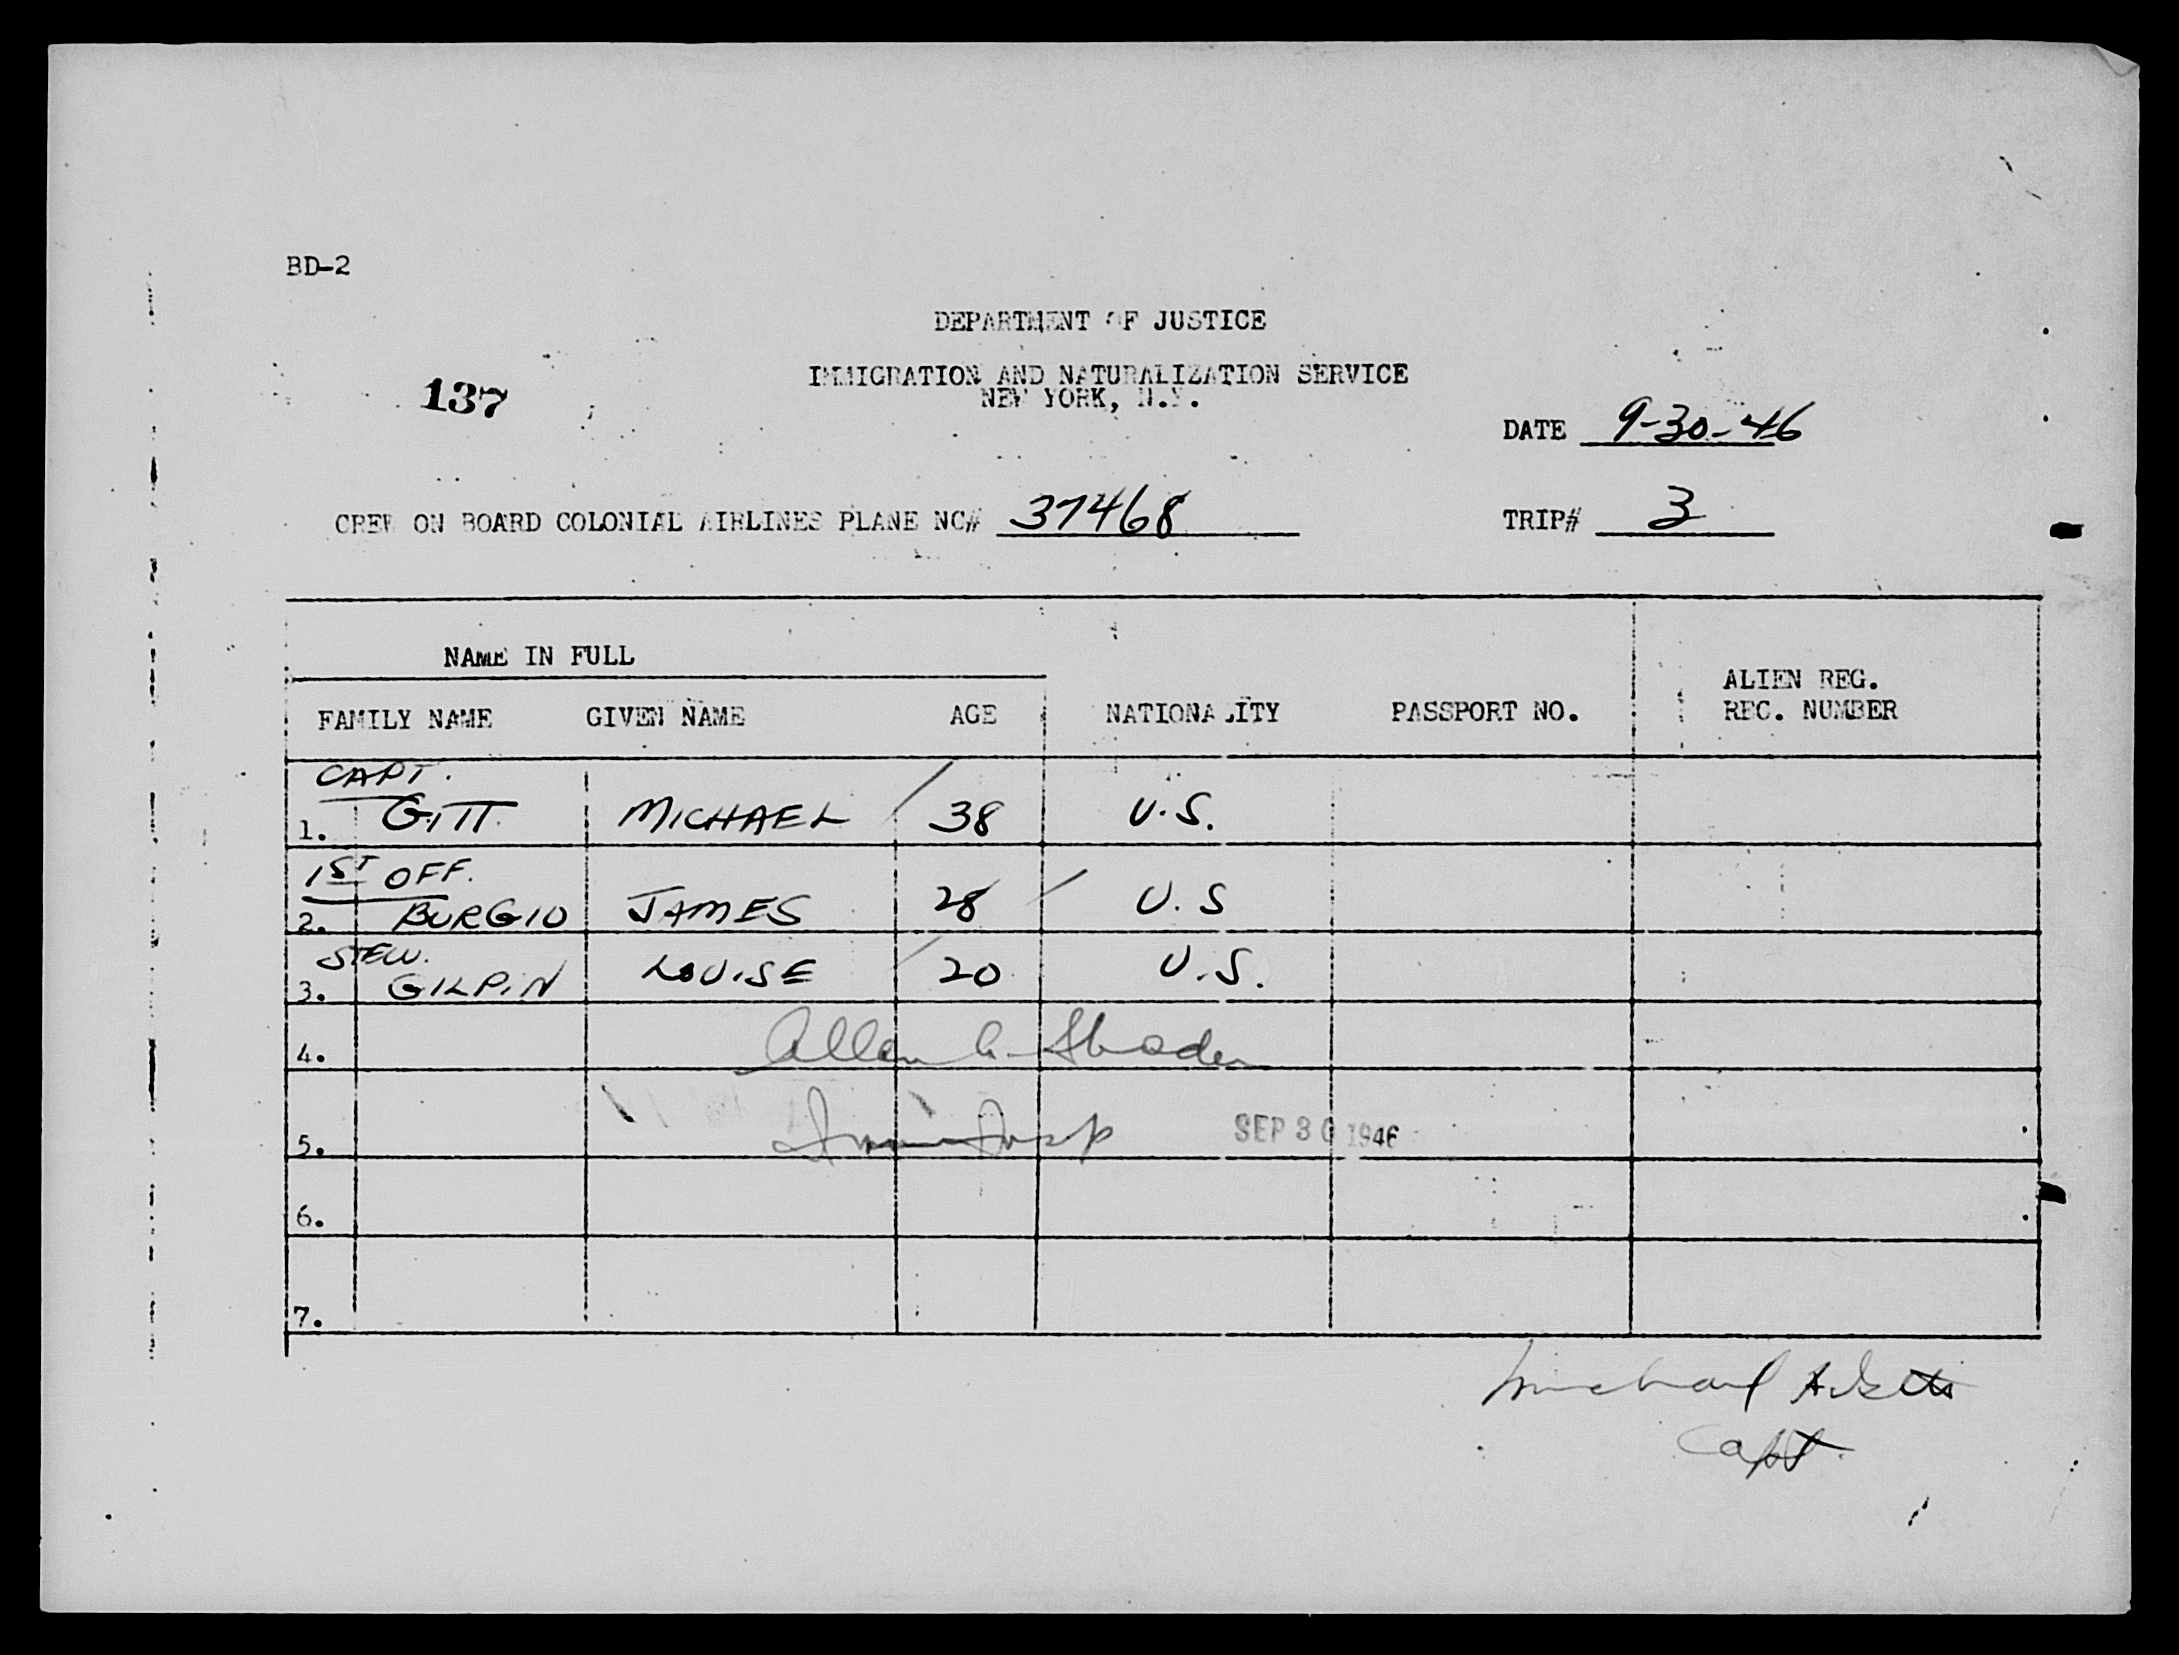 BD-2
DEPARTMENT OF JUSTICE
137
IMMIGRATION AND NATURALIZATION SERVICE
NEW YORK, N.Y.
DATE 9-30-46
CREW ON BOARD COLONIAL AIRLINES PLANE NC# 37468 TRIP# 3
NAME IN FULL
FAMILY NAME GIVEN NAME AGE NATIONALITY PASSPORT NO. ALIEN REG. REC. NUMBER
CAPT.
1. GITT MICHAEL 38 U.S.
1ST OFF.
2. BURGIO JAMES 28 U.S
STEW.
3. GILPIN LOUISE 20 U.S.
4. Allen
5. SEP 30 1946
6.
7.
Michael
Capt.